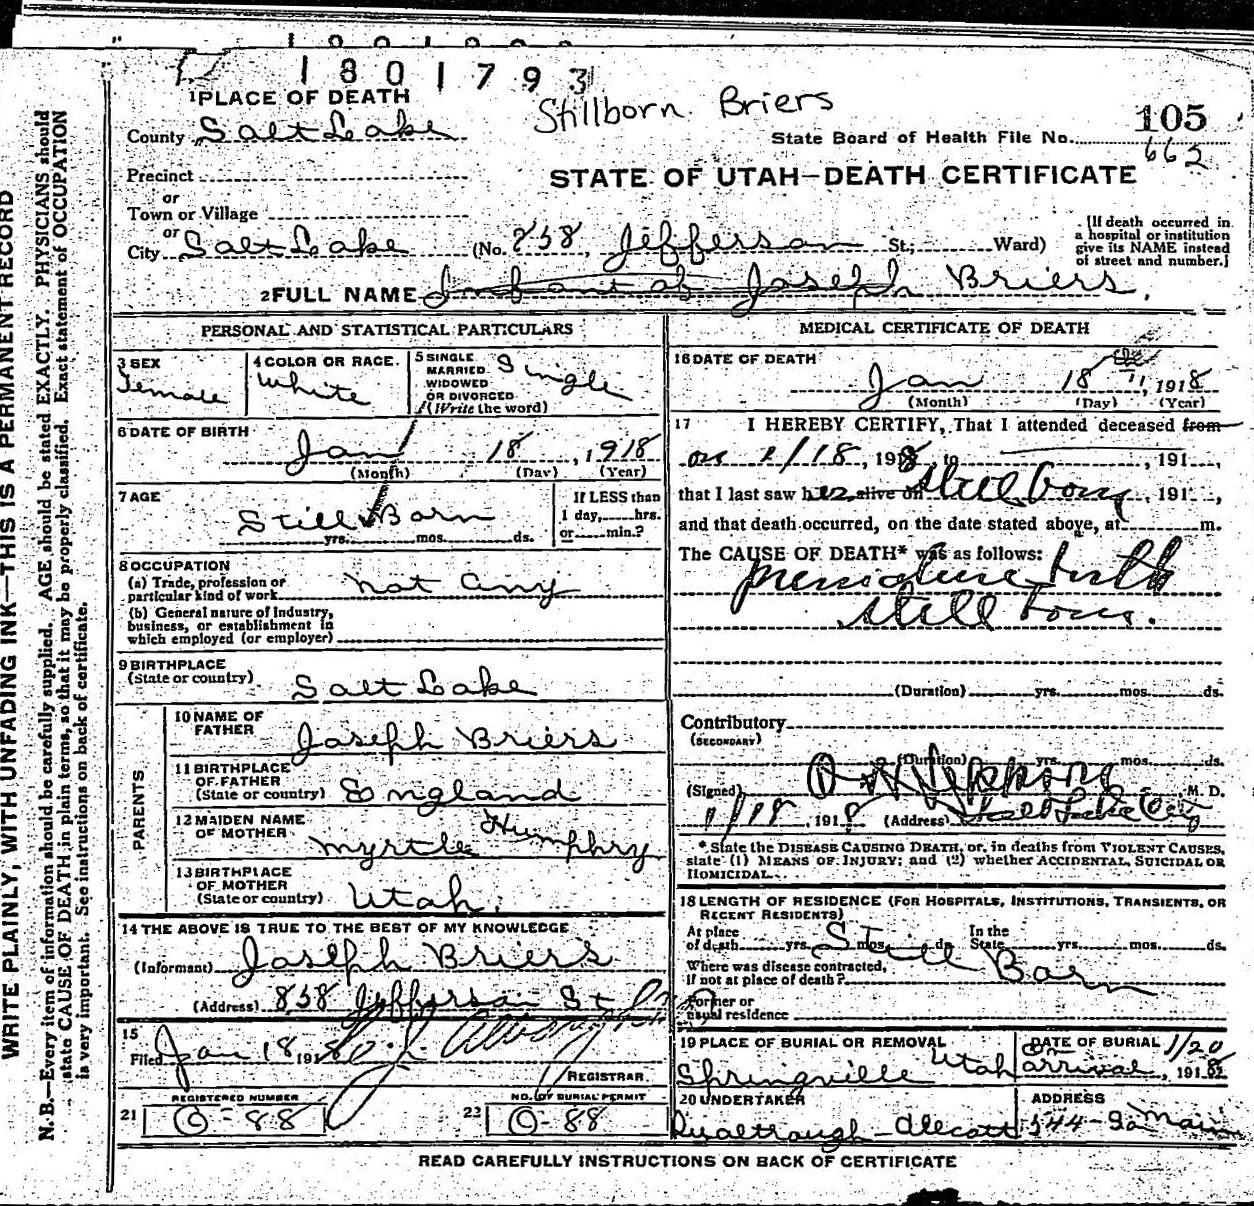 1801793
Stillborn Briers
1 PLACE OF DEATH
County Salt Lake
State Board of Health File No. 105
662
STATE OF UTAH—DEATH CERTIFICATE
Precinct
or
Town or Village
or
City Salt Lake (No. 838, Jefferson St.; Ward)
[If death occurred in
a hospital or institution
give its NAME instead
of street and number.]
2 FULL NAME Infant of Joseph Briers.
PERSONAL AND STATISTICAL PARTICULARS
3 SEX
Female
4 COLOR OR RACE.
White
5 SINGLE
MARRIED
WIDOWED
OR DIVORCED
(Write the word)
Single
6 DATE OF BIRTH
Jan 18, 1918
(Month) (Day) (Year)
7 AGE
Still Born
yrs. mos. ds.
If LESS than
1 day, hrs.
or min.?
8 OCCUPATION
(a) Trade, profession or
particular kind of work not any
(b) General nature of Industry,
business, or establishment in
which employed (or employer)
9 BIRTHPLACE
(State or country) Salt Lake
PARENTS
10 NAME OF
FATHER Joseph Briers
11 BIRTHPLACE
OF FATHER
(State or country) England
12 MAIDEN NAME
OF MOTHER Myrtle Humphry
13 BIRTHPLACE
OF MOTHER
(State or country) Utah.
14 THE ABOVE IS TRUE TO THE BEST OF MY KNOWLEDGE
(Informant) Joseph Briers
(Address) 838 Jefferson St
15
Filed Jan 18 1918
REGISTRAR
21 REGISTERED NUMBER
O-88
22 NO. OF BURIAL PERMIT
O-88
MEDICAL CERTIFICATE OF DEATH
16 DATE OF DEATH
Jan 18, 1918
(Month) (Day) (Year)
17 I HEREBY CERTIFY, That I attended deceased from
on 1/18, 1918, to , 191 ,
that I last saw her alive on still born, 191 ,
and that death occurred, on the date stated above, at m.
The CAUSE OF DEATH* was as follows:
premature birth
still born.
(Duration) yrs. mos. ds.
Contributory
(SECONDARY)
(Duration) yrs. mos. ds.
(Signed) M. D.
1/18, 1918 (Address) Salt Lake City
*State the DISEASE CAUSING DEATH, or, in deaths from VIOLENT CAUSES,
state (1) MEANS OF INJURY; and (2) whether ACCIDENTAL, SUICIDAL OR
HOMICIDAL.
18 LENGTH OF RESIDENCE (FOR HOSPITALS, INSTITUTIONS, TRANSIENTS, OR
RECENT RESIDENTS)
At place
of death yrs. mos. ds. In the
State yrs. mos. ds.
Still Born
Where was disease contracted,
if not at place of death?
Former or
usual residence
19 PLACE OF BURIAL OR REMOVAL
Springville Utah
DATE OF BURIAL 1/20
on arrival, 1918
20 UNDERTAKER
ADDRESS
544-So Main
READ CAREFULLY INSTRUCTIONS ON BACK OF CERTIFICATE
WRITE PLAINLY, WITH UNFADING INK—THIS IS A PERMANENT RECORD
N. B.—Every item of information should be carefully supplied. AGE should be stated EXACTLY. PHYSICIANS should
state CAUSE OF DEATH in plain terms, so that it may be properly classified. Exact statement of OCCUPATION
is very important. See instructions on back of certificate.